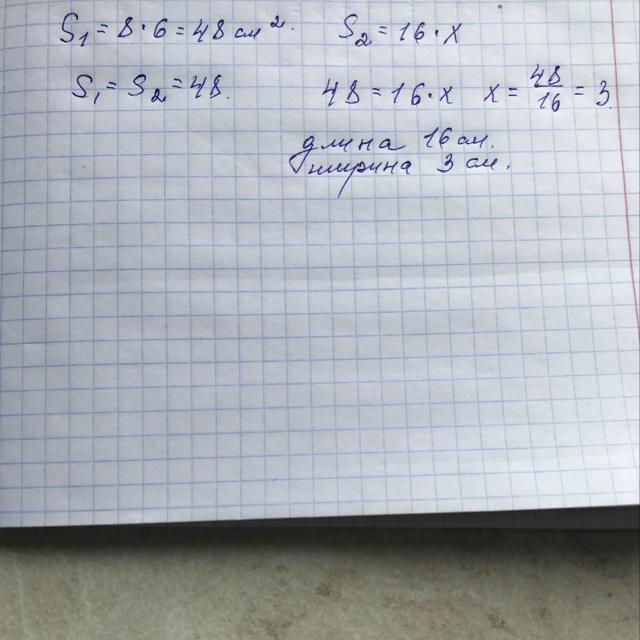 S₁ = 8 · 6 = 48 см². S₂ = 16 · x
S₁ = S₂ = 48. 48 = 16 · x x = 48/16 = 3
длина 16 см.
ширина 3 см.